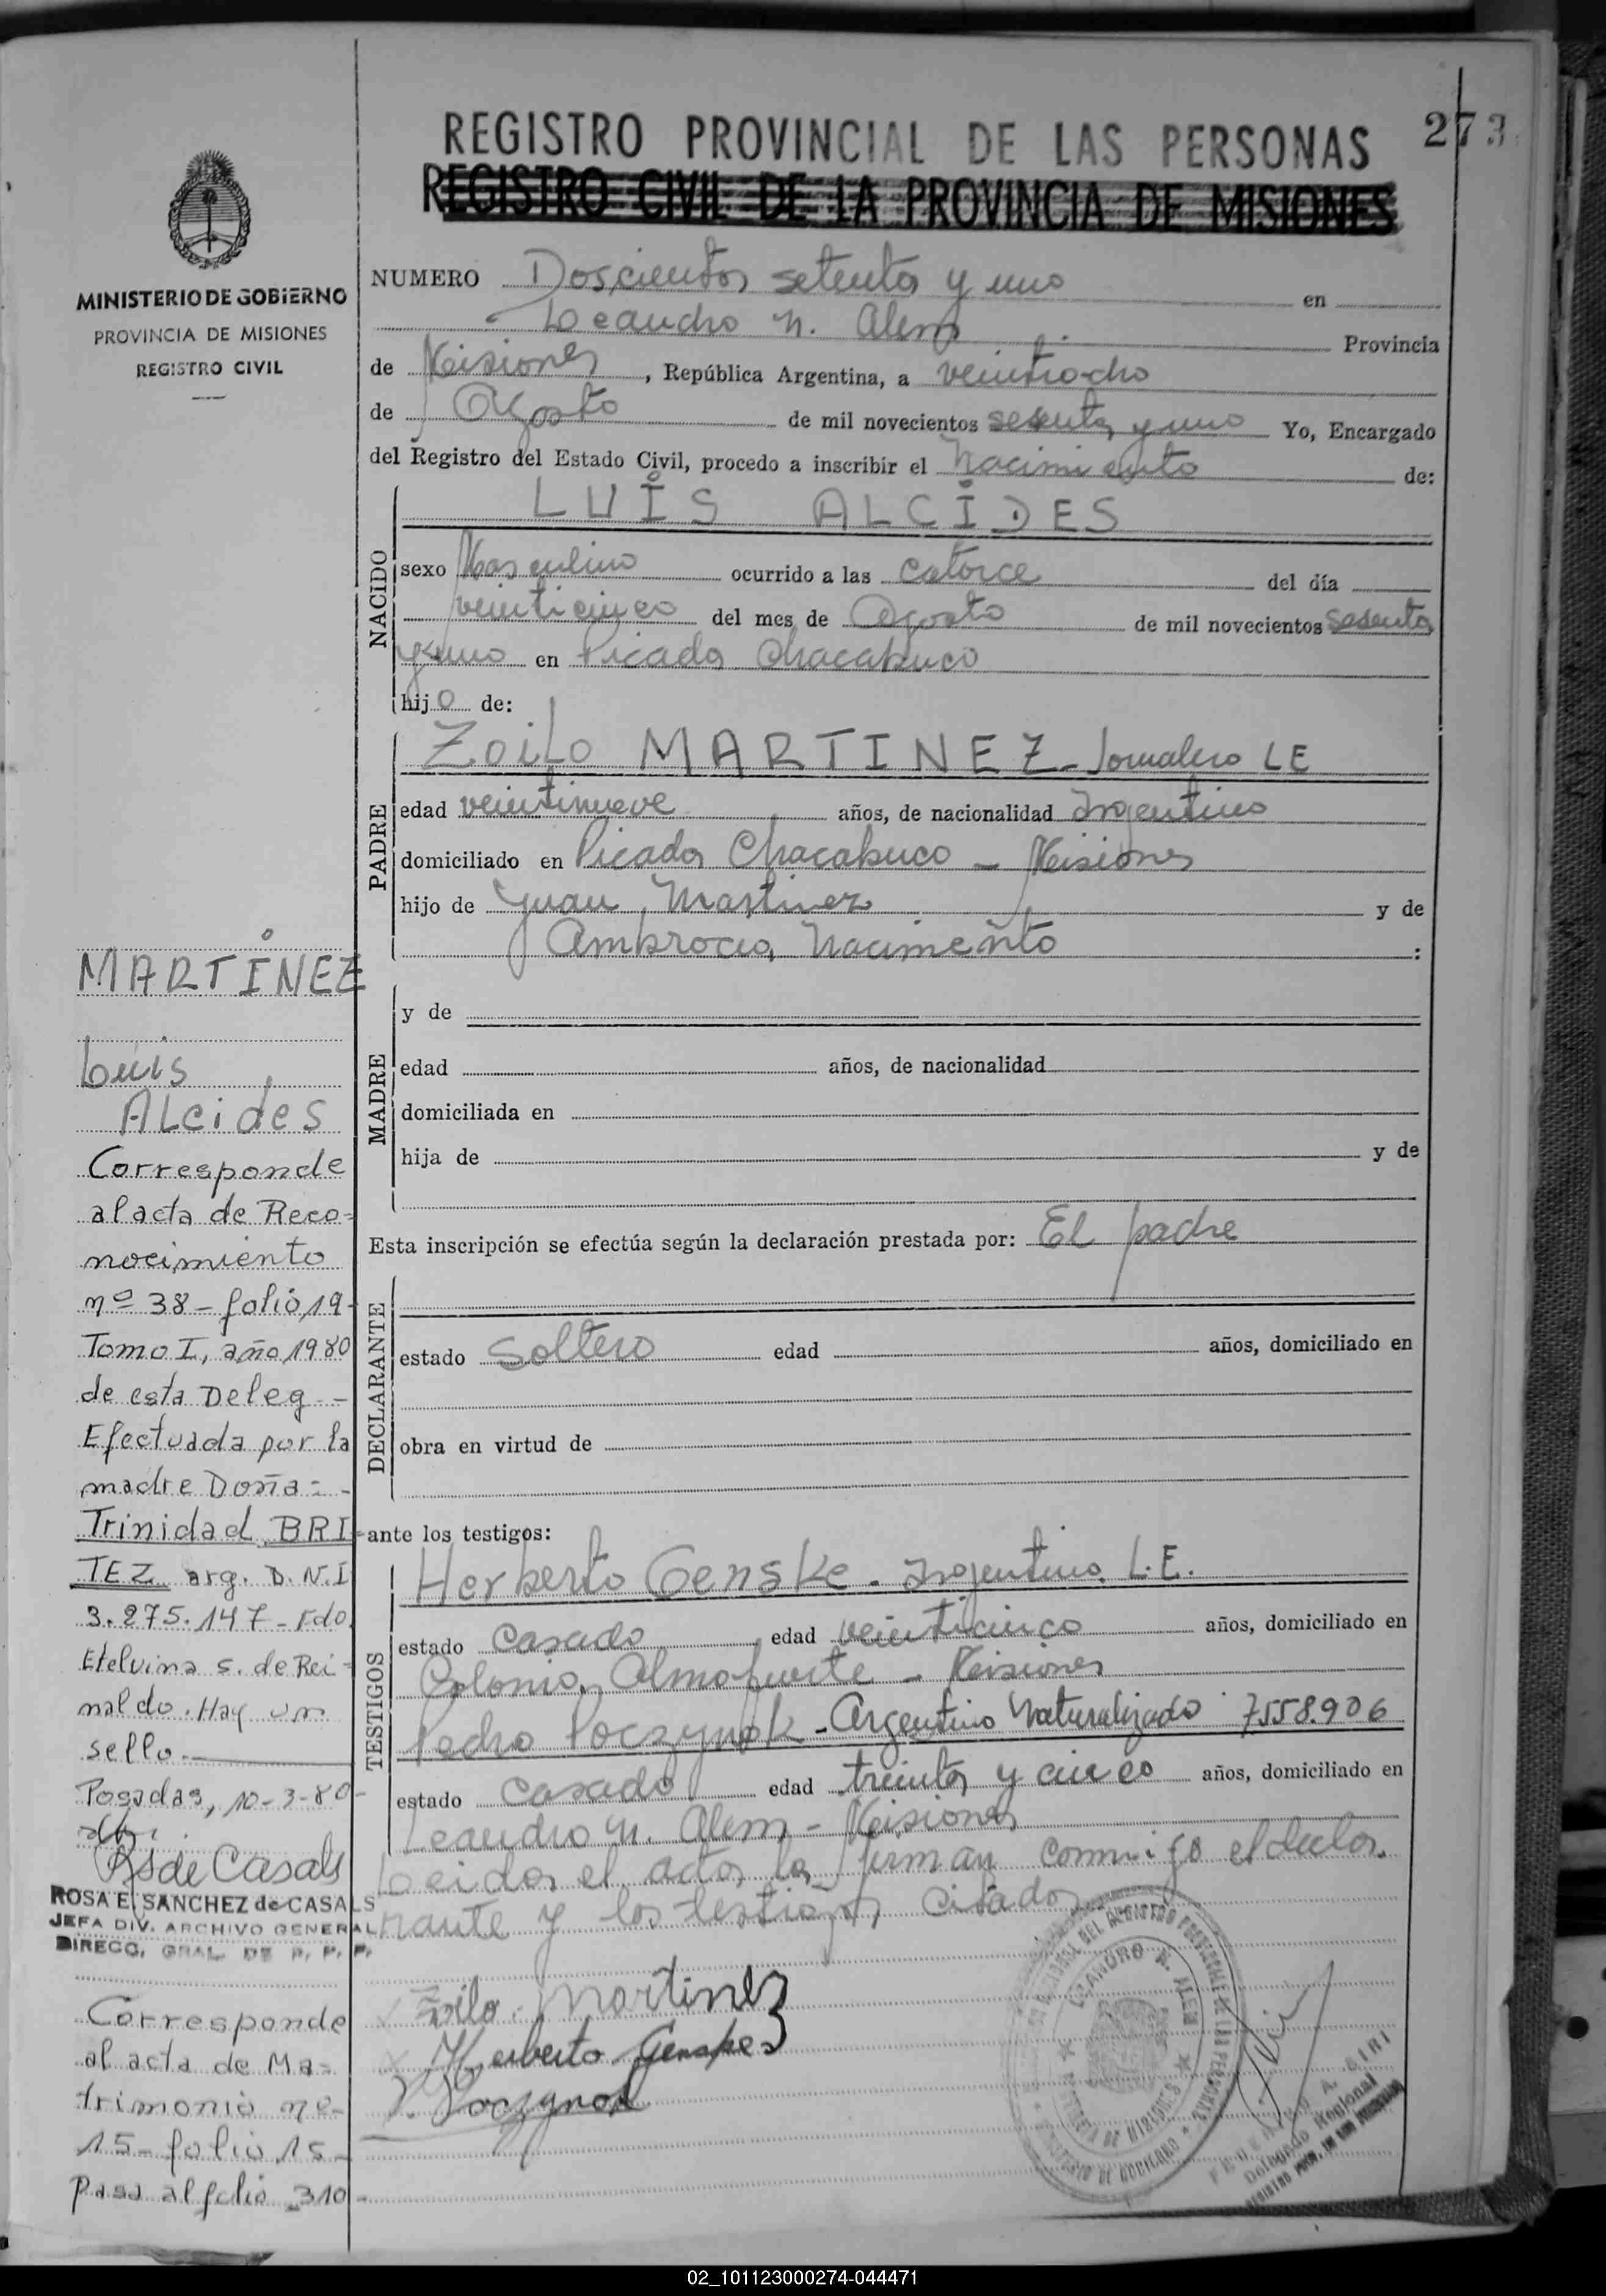 273
REGISTRO PROVINCIAL DE LAS PERSONAS
REGISTRO CIVIL DE LA PROVINCIA DE MISIONES
MINISTERIO DE GOBIERNO
PROVINCIA DE MISIONES
REGISTRO CIVIL
NUMERO Doscientos setenta y uno en
Leandro N. Alem Provincia
de Misiones, República Argentina, a veintiocho
de Agosto de mil novecientos sesenta y uno Yo, Encargado
del Registro del Estado Civil, procedo a inscribir el Nacimiento de:
LUIS ALCIDES
NACIDO
sexo Masculino ocurrido a las catorce del día
veinticinco del mes de Agosto de mil novecientos sesenta
y uno en Picada Chacabuco
hijo de:
Zoilo MARTINEZ - Jornalero LE
PADRE
edad veintinueve años, de nacionalidad Argentino
domiciliado en Picada Chacabuco - Misiones
hijo de Juan Martinez y de
Ambrocia Nacimento :
MADRE
y de
edad años, de nacionalidad
domiciliada en
hija de y de
Esta inscripción se efectúa según la declaración prestada por: El padre
DECLARANTE
estado Soltero edad años, domiciliado en
obra en virtud de
ante los testigos:
TESTIGOS
Herberto Genske - Argentino L.E.
estado casado edad veinticinco años, domiciliado en
Colonia Almafuerte - Misiones
Pedro Poczynok - Argentino Naturalizado 7558.906
estado casado edad treinta y cinco años, domiciliado en
Leandro N. Alem - Misiones
Leida el acta la firman conmigo el decla-
rante y los testigos citados
Zoilo Martinez
Herberto Genske
P. Poczynok
LEANDRO N. ALEM
PROVINCIA DE MISIONES
MINISTERIO DE GOBIERNO
Delegado Regional
MARTINEZ
Luis
Alcides
Corresponde
al acta de Reco-
nocimiento
nº 38 - folio 19-
Tomo I, año 1980
de esta Deleg.-
Efectuada por la
madre Doña:-
Trinidad BRI-
TEZ arg. D.N.I
3.275.147 - Fdo.
Etelvina S. de Rei-
naldo. Hay un
sello.
Posadas, 10-3-80-
RS de Casals
ROSA E. SANCHEZ de CASALS
JEFA DIV. ARCHIVO GENERAL
DIRECC. GRAL. DE R. P. P.
Corresponde
al acta de Ma-
trimonio nº-
15 - folio 15-
Pasa al folio 310-
02_101123000274-044471